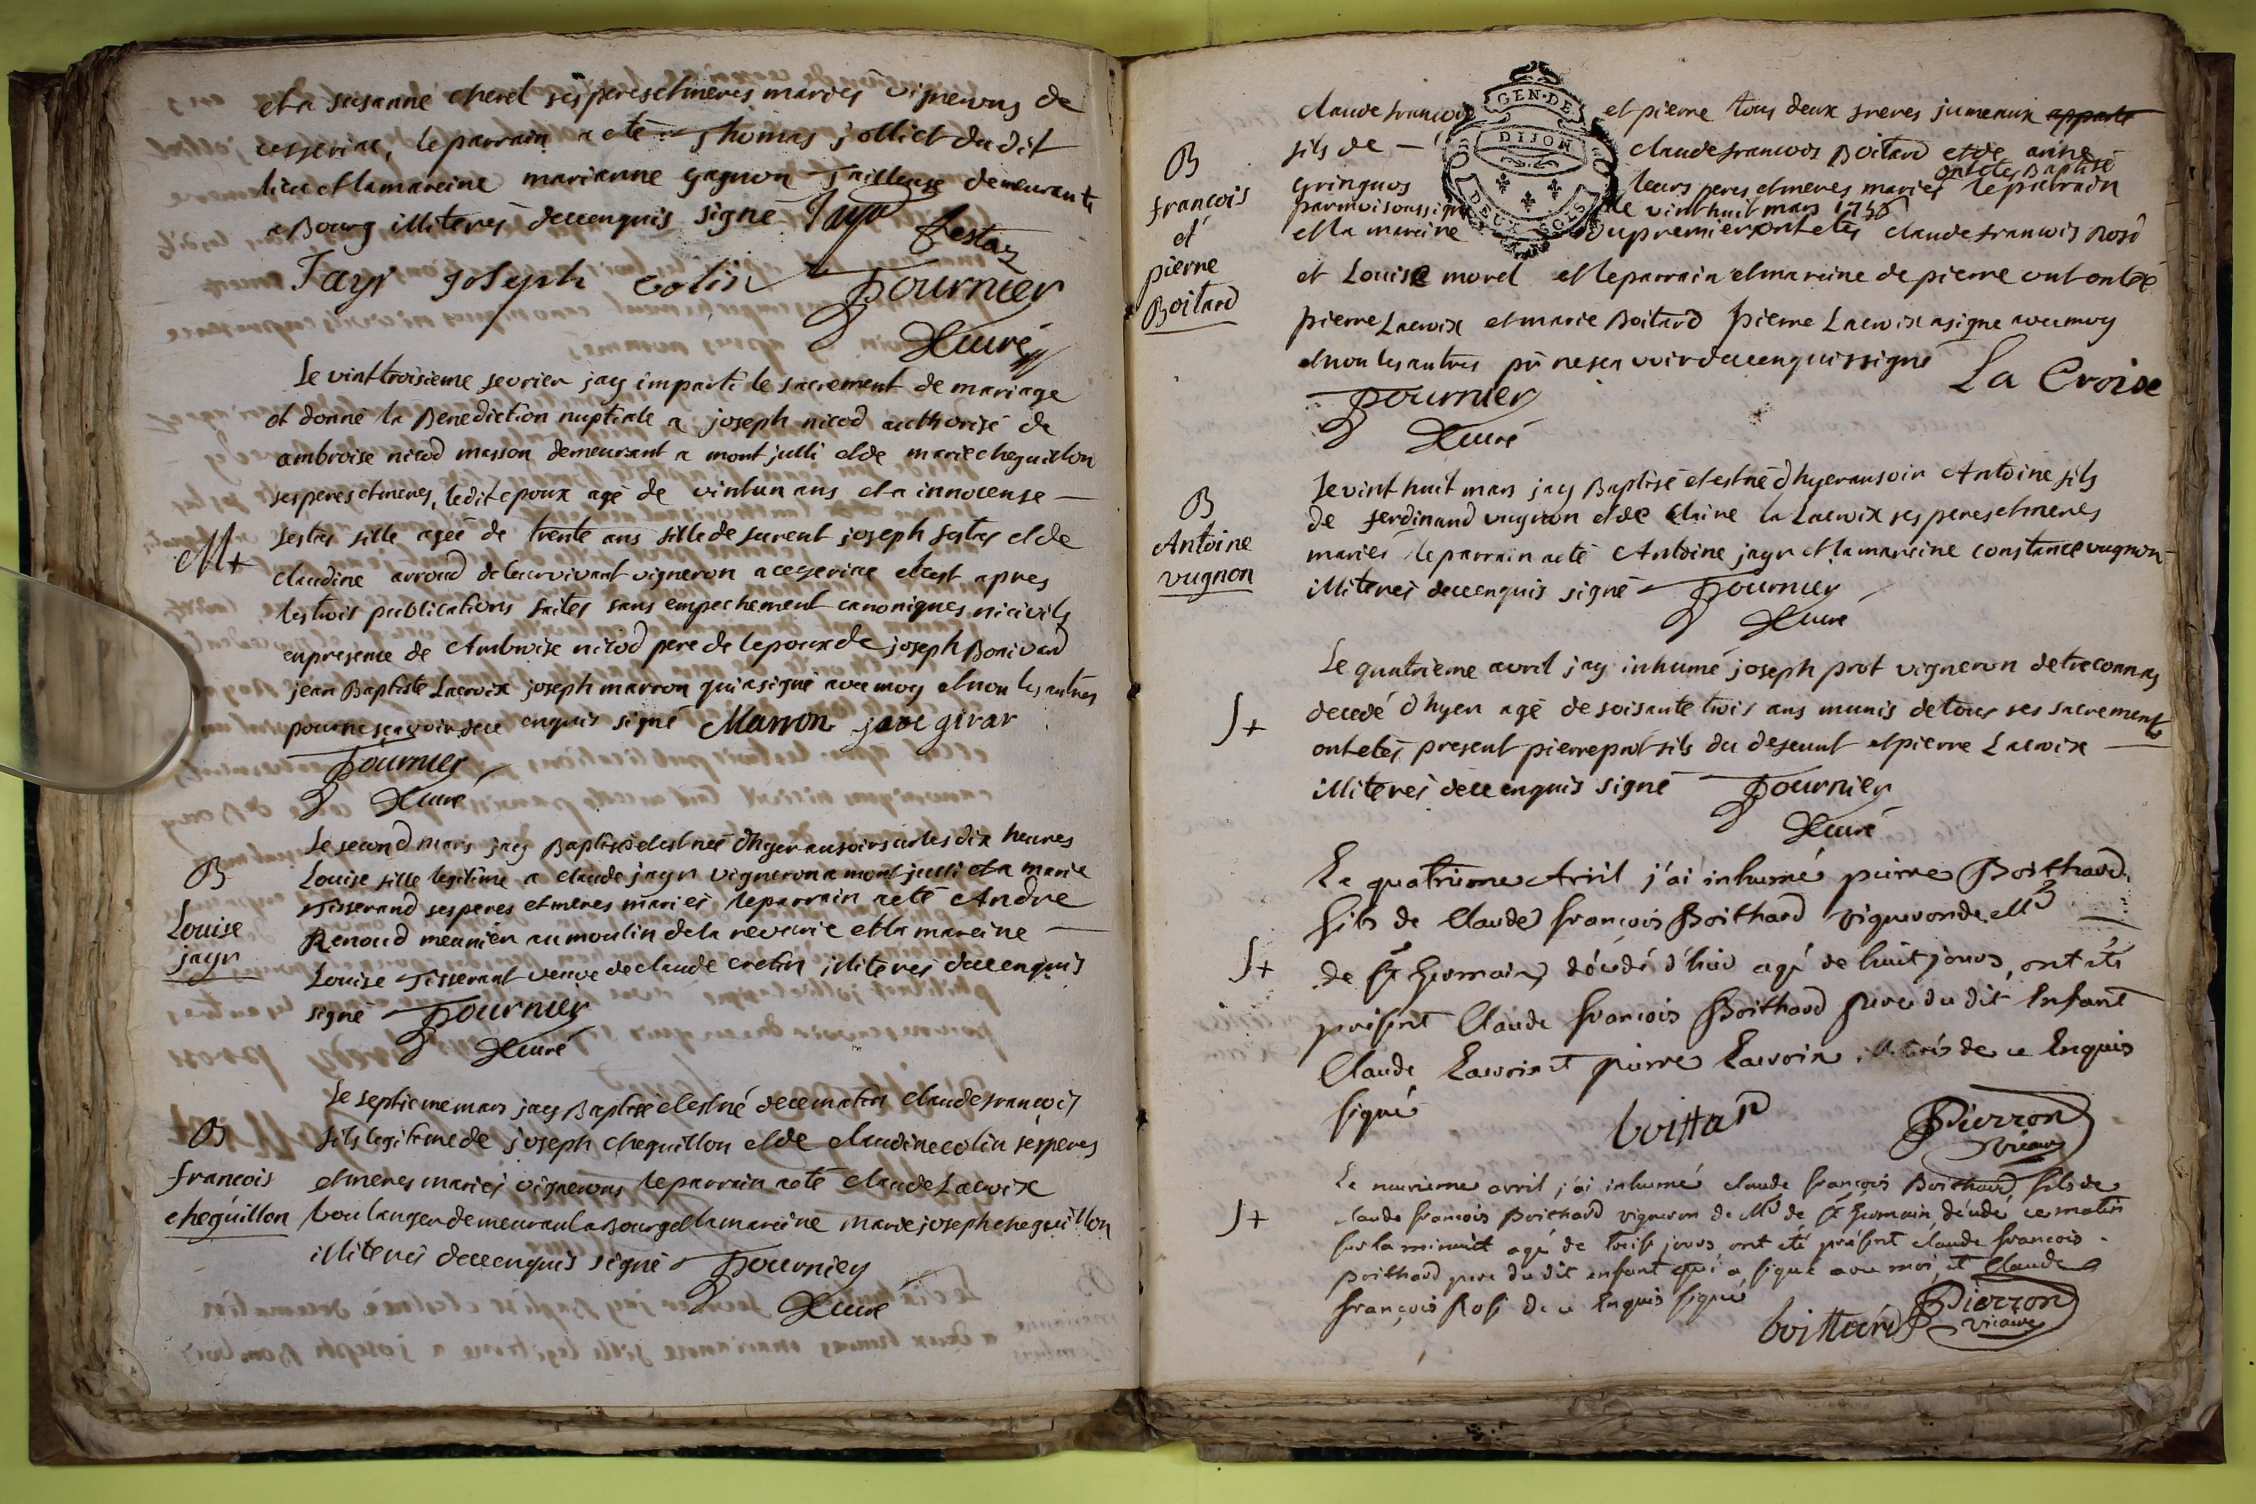 et a susanne cherel ses peres et meres mariés vignerons de
ceseriac, le parrain a eté thomas jolliet du dit
lieu et la mareine marianne gagnon tailleuse demeurante
a Bourg illiterés de ce enquis signé Jayr festaz
Jayr joseph colin fournier
curé
le vint troisieme fevrier jay imparti le sacrement de mariage
et donné la Benediction nuptiale a joseph nicod authorisé de
ambroise nicod masson demeurant a mont julli et de marie cheguillon
ses peres et meres, ledit epoux agé de vint un ans et a innocense
M+
festas fille agée de trente ans fille de furent joseph festas et de
claudine arroud de leur vivant vigneron a ceseriac et c'est apres
les trois publications faites sans empechement canoniques ni civils
en presence de Ambroise nicod pere de l epoux de joseph Bonivard
jean Baptiste Lacroix joseph marron qui a signé avec moy et non les autres
pour ne scavoir de ce enquis signé Marron jave girar
fournier
curé
B
Louise
jayr
le second mars jay Baptisé et est née d'hyer au soir sur les dix heures
Louise fille legitime a claude jayr vigneron a mont julli et a marie
Tisserand ses peres et meres mariés, le parrain a eté André
Renoud meunier au moulin de la reverie et la mareine
Louise Tisserant veuve de claude cretin illiterés de ce enquis
signé fournier
curé
B
francois
cheguillon
le septieme mars jay Baptisé et est né de ce matin claude francois
fils legitime de joseph cheguillon et de claudine colin ses peres
et meres mariés vignerons le parrain a eté claude Lacroix
boulanger demeurant a Bourg et la mareine marie joseph cheguillon
illiterés de ce enquis signé fournier
curé
B
francois
et
pierre
Boitard
GEN. DE
DIJON
DEUX SOLS
claude francois et pierre tous deux freres jumeaux
fils de claude francois Boitard et de anne
ont etes Baptisé
Gringuos leurs peres et meres mariés le parrain
par moi soussigné le vint huit mars
et la mareine du premier ont etés claude francois Rosd
et Louise morel et le parrain et mareine de pierre ont eté
pierre Lacroix et marie Boitard pierre Lacroix a signé avec moy
et non les autres pr ne sca voir de ce enquis signé
La Croise
fournier
curé
B
Antoine
vugnon
le vint huit mars jay Baptisé et est né d hyer au soir Antoine fils
de ferdinand vugnon et de Claire la Lacroix ses peres et meres
mariés le parrain a eté Antoine jayr et la mareine constance vugnon
illiterés de ce enquis signé fournier
curé
S+
Le quatrieme avril jay inhumé joseph prot vigneron de treconnas
decedé d hyer agé de soisante trois ans munis de tous ses sacrements
ont etés present pierre prot fils du defunt et pierre Lacroix
illiterés de ce enquis signé fournier
curé
S+
Le quatrieme Avril j'ai inhumé pierre Boithard
fils de Claude françois Boithard vigneron de Mt
de St Germain, décedé d'hier agé de huit jours, ont été
present Claude françois Boithard Pere du dit Enfant
Claude Lacroix et pierre Lacroix illiterés de ce Enquis
signé boittard Pierron
vicaire
S+
Le neuvieme avril j'ai inhumé claude françois Boithard fils de
claude françois Boithard vigneron de Mt de St Germain, décedé ce matin
sur la minuit agé de treise jours, ont été présent claude francois
Boithard pere du dit enfant qui a signé avec moi, et Claude
françois Rosd de ce Enquis signé
boittard Pierron
vicaire